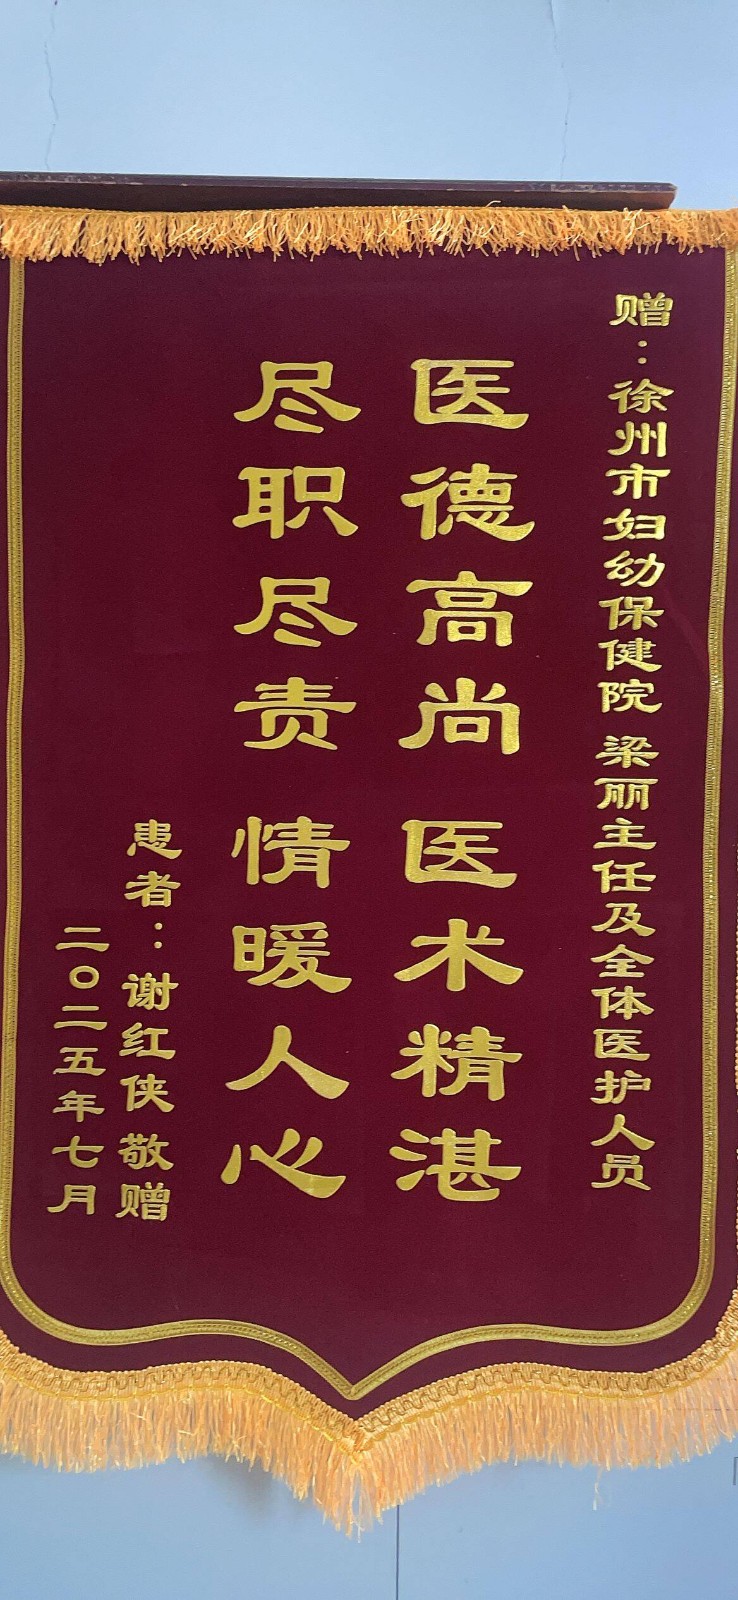 赠：徐州市妇幼保健院 梁丽主任及全体医护人员
医德高尚 医术精湛
尽职尽责 情暖人心
患者：谢红侠敬赠
二〇二五年七月